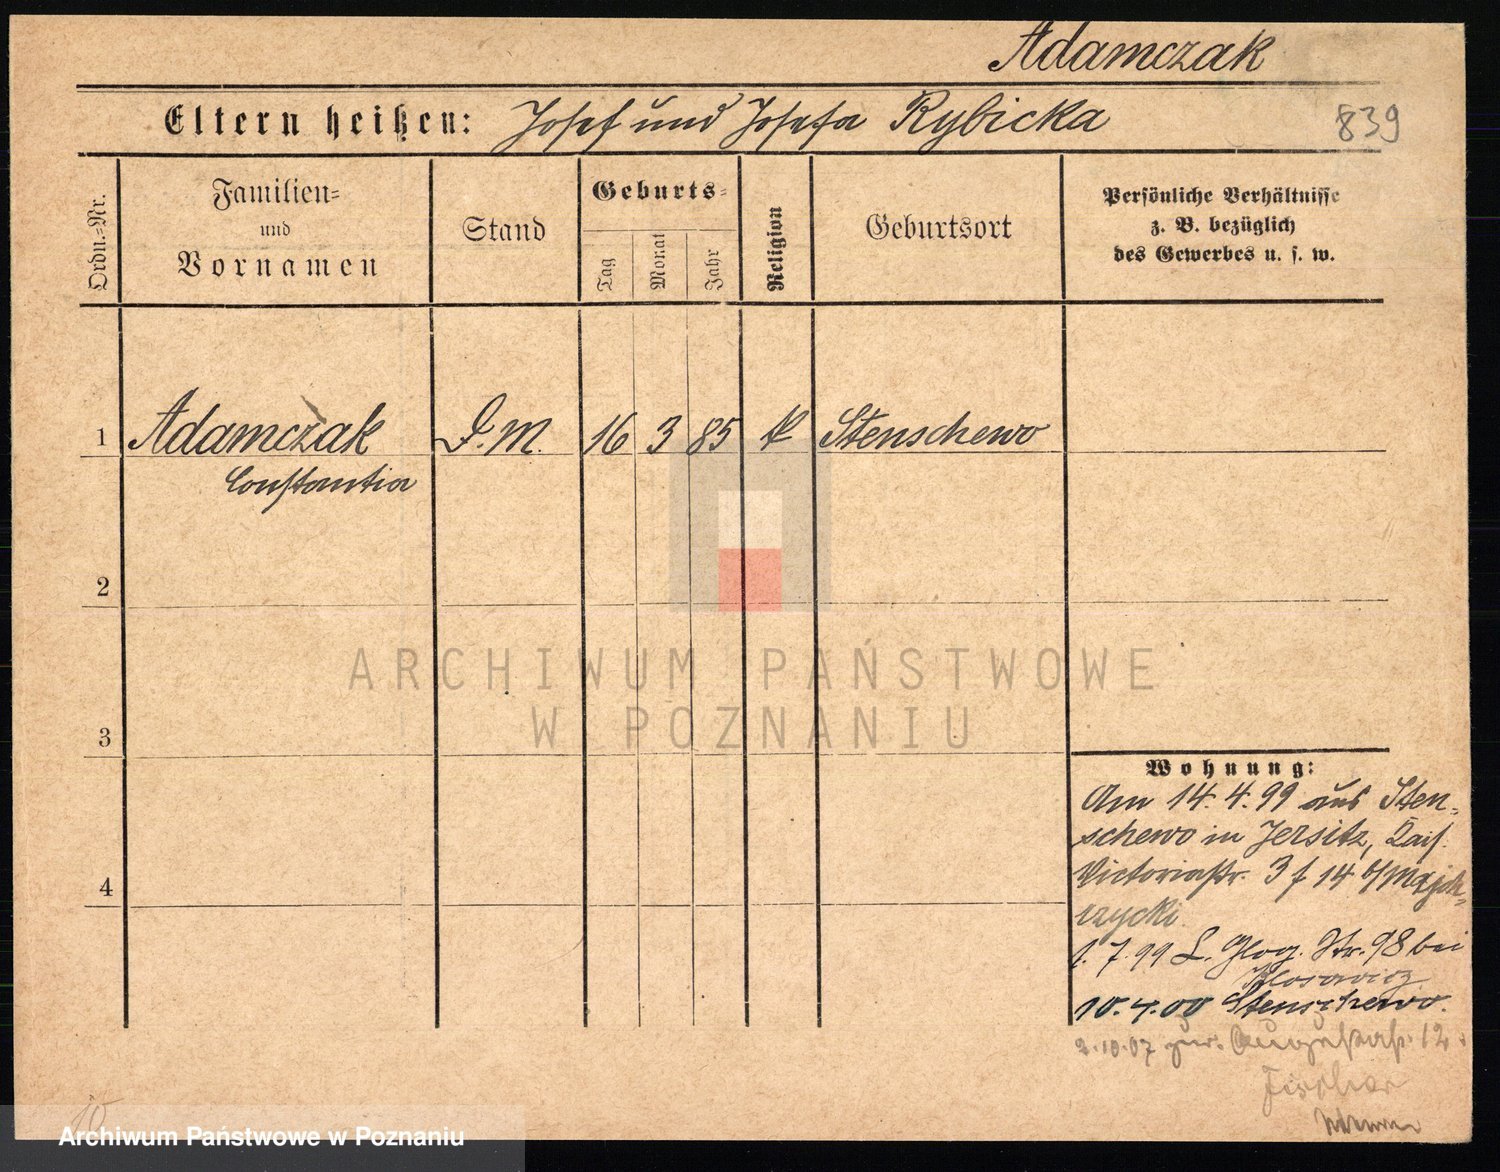 Adamczak
Eltern heißen: Josef und Josefa Rybicka
839
Ordn.=Nr.
Familien=
und
Vornamen
Stand
Geburts=
Tag
Monat
Jahr
Religion
Geburtsort
Persönliche Verhältnisse
z. B. bezüglich
des Gewerbes u. s. w.
1 Adamczak D.M. 16 3 85 k Stenschewo
Constantia
2
ARCHIWUM PAŃSTWOWE
W POZNANIU
3
Wohnung:
Am 14.4.99 aus Sten-
schewo in Jersitz, Kais.
4
Victoriastr. 3 f 14
zycki
1.7.99 L. Glog. Str. 98 bei
10.4.00 Stenschewo.
2.10.07 zur. Augustastr. 12.
Fischer
10
Archiwum Państwowe w Poznaniu